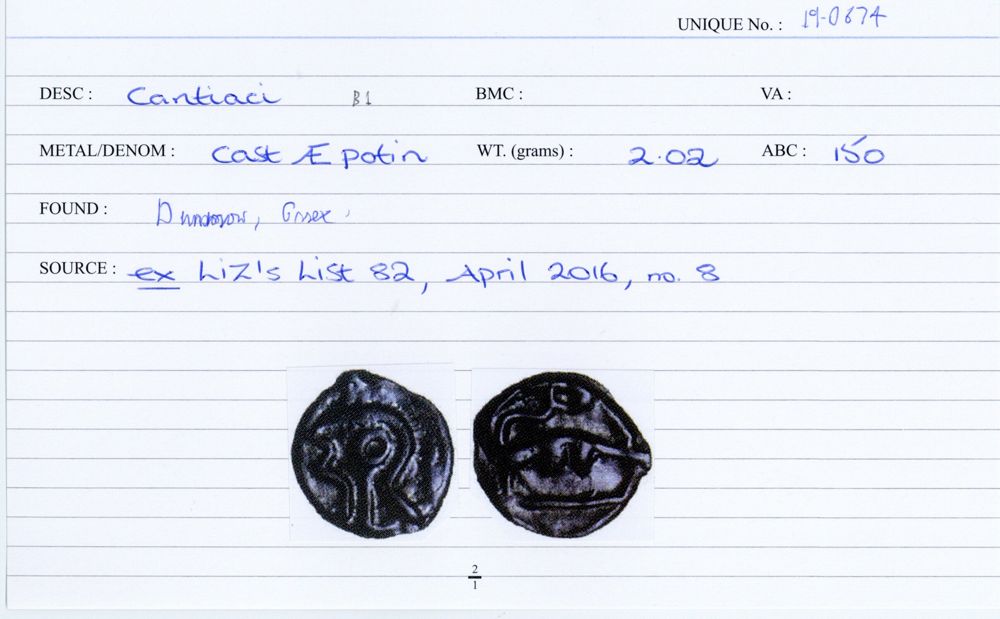 UNIQUE No. : 19-0674
DESC : Cantiaci B1 BMC : VA :
METAL/DENOM : Cast Æ potin WT. (grams) : 2.02 ABC : 150
FOUND : Dunmow, Essex.
SOURCE : ex Liz's List 82, April 2016, no. 8
2
1